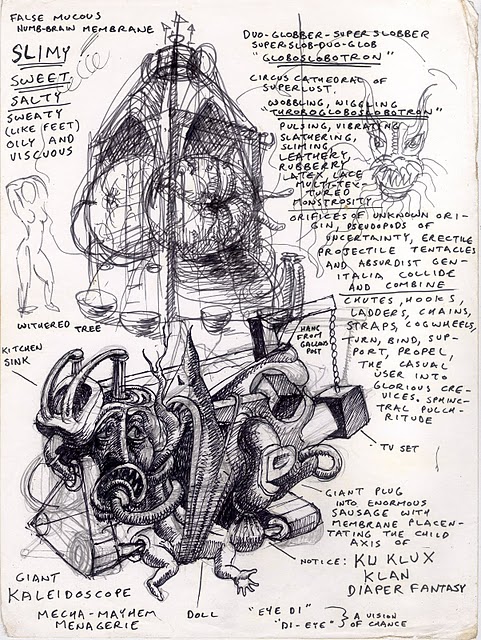 FALSE MUCOUS
NUMB-BRAIN MEMBRANE
SLIMY
SWEET
SALTY
SWEATY
(LIKE FEET)
OILY AND
VISCUOUS
WITHERED TREE
KITCHEN
SINK
DUO-GLOBBER-SUPER SLOBBER
SUPERSLOB-DUO-GLOB
"GLOBOSLOBOTRON"
CIRCUS CATHEDRAL OF
SUPERLUST.
WOBBLING, NIGGLING
"THROBOGLOBOSLOBOTRON"
PULSING, VIBRATING
SLATHERING,
SLIMING,
LEATHERY,
RUBBERY
LATEX, LACE
MULTI-TEX-
TURED
MONSTROSITY
ORIFICES OF UNKNOWN ORI-
GIN, PSEUDOPODS OF
UNCERTAINTY, ERECTILE
PROJECTILE TENTACLES
AND ABSURDIST GEN-
ITALIA COLLIDE
AND COMBINE
CHUTES, HOOKS,
LADDERS, CHAINS,
STRAPS, COGWHEELS,
TURN, BIND, SUP-
PORT, PROPEL,
THE CASUAL
USER INTO
GLORIOUS CRE-
VICES. SPHINC-
TRAL PULCH-
RITUDE
HANG
FROM
GALLOWS
POST
TV SET
GIANT PLUG
INTO ENORMOUS
SAUSAGE WITH
MEMBRANE PLACEN-
TATING THE CHILD
AXIS OF
NOTICE: KU KLUX
KLAN
DIAPER FANTASY
GIANT
KALEIDOSCOPE
MECHA-MAYHEM
MENAGERIE
DOLL
"EYE DI"
"DI-EYE"
A VISION
OF CHANCE